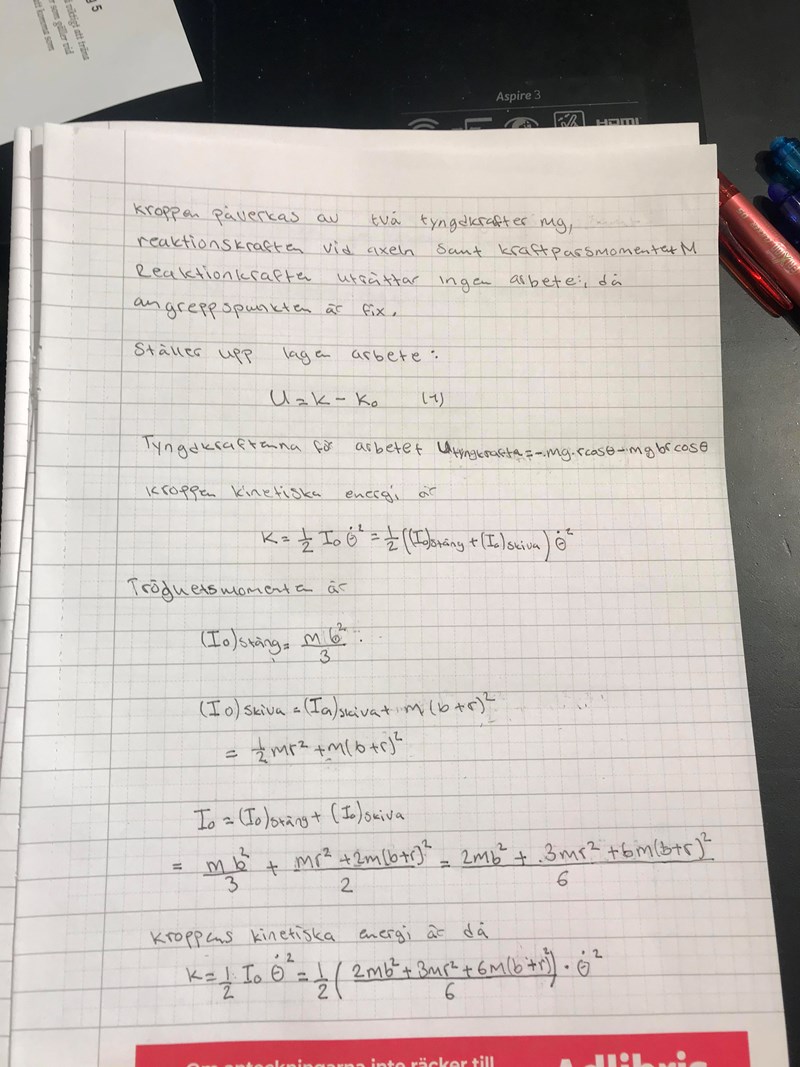 Aspire 3
HDMI
Kroppen påverkas av två tyngdkrafter mg,
reaktionskraften vid axeln samt kraftparsmomentet M
Reaktionkrafter uträttar ingen arbete, då
angreppspunkten är fix.
Ställer upp lagen arbete:
U = K - K₀ (1)
Tyngdkrafterna för arbetet U tyngkrafta = -mg·rcosθ - mgbrcosθ
Kroppen kinetiska energi är
K = 1/2 I₀ θ̇² = 1/2 ((I₀)stång + (I₀)skiva) θ̇²
Tröguetsmomenten är
(I₀)stång = mb²/3
(I₀)skiva = (Ia)skiva + m(b+r)²
= 1/2 mr² + m(b+r)²
I₀ = (I₀)stång + (I₀)skiva
= mb²/3 + (mr² + 2m(b+r)²)/2 = (2mb² + 3mr² + 6m(b+r)²)/6
Kroppens kinetiska energi är då
K = 1/2 I₀ θ̇² = 1/2 ((2mb² + 3mr² + 6m(b+r)²)/6) · θ̇²
Om anteckningarna inte räcker till
Adlibris